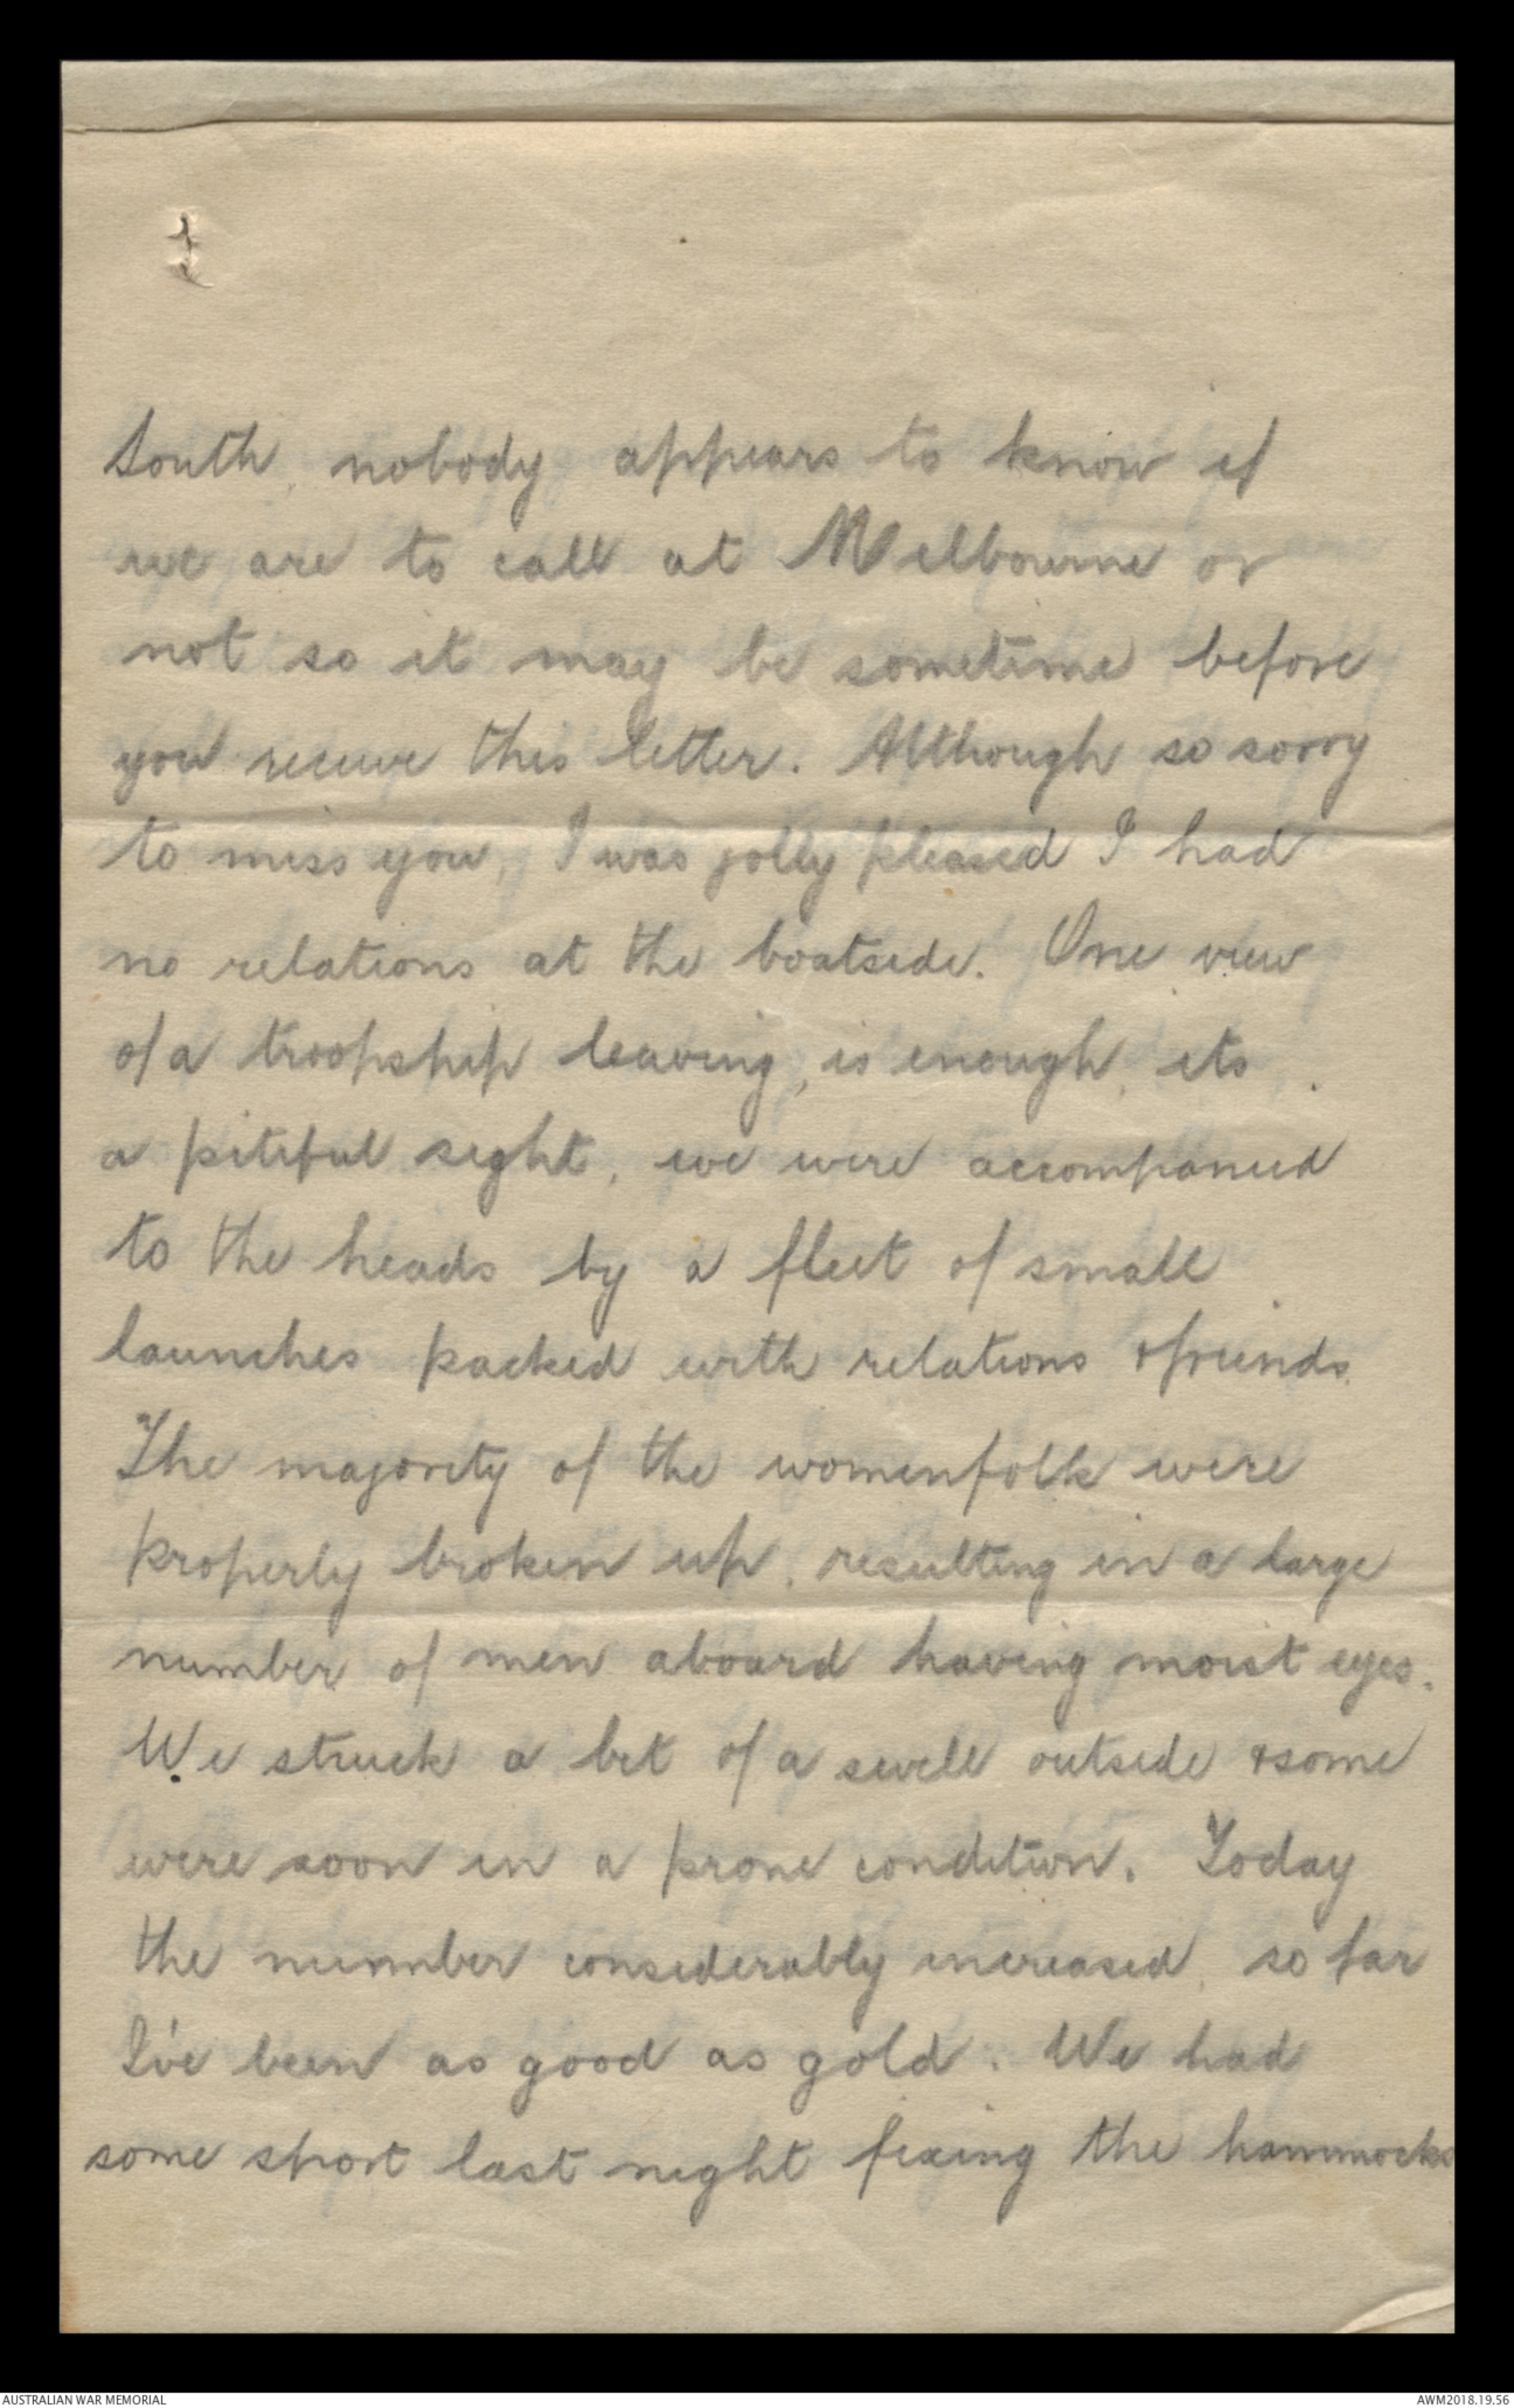 South, nobody appears to know if
we are to call at Melbourne or
not so it may be sometime before
you receive this letter. Although so sorry
to miss you, I was jolly pleased I had
no relations at the boatside. One view
of a troopship leaving, is enough, its
a pitiful sight, we were accompanied
to the heads by a fleet of small
launches packed with relations & friends.
The majority of the womenfolk were
properly broken up, resulting in a large
number of men aboard having moist eyes.
We struck a bit of a swell outside & some
were soon in a prone condition. Today
the nunmber considerably increased, so far
I've been as good as gold. We had
some sport last night fixing the hammocks
AUSTRALIAN WAR MEMORIAL
AWM2018.19.56